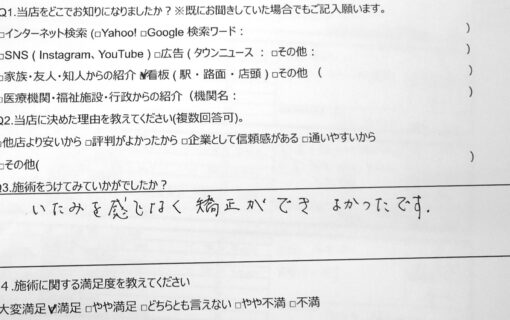 Q1.当店をどこでお知りになりましたか？※既にお聞きしていた場合でもご記入願います。
□インターネット検索 (□Yahoo! □Google 検索ワード： )
□SNS ( Instagram、YouTube ) □広告 ( タウンニュース ： □その他： )
□家族・友人・知人からの紹介 ☑看板 ( 駅・路面・店頭 ) □その他 ( )
□医療機関・福祉施設・行政からの紹介 （機関名： )
Q2.当店に決めた理由を教えてください(複数回答可)。
□他店より安いから □評判がよかったから □企業として信頼感がある □通いやすいから
□その他( )
Q3.施術をうけてみていかがでしたか？
いたみを感じなく 矯正ができ よかったです.
4.施術に関する満足度を教えてください
大変満足 ☑満足 □やや満足 □どちらとも言えない □やや不満 □不満